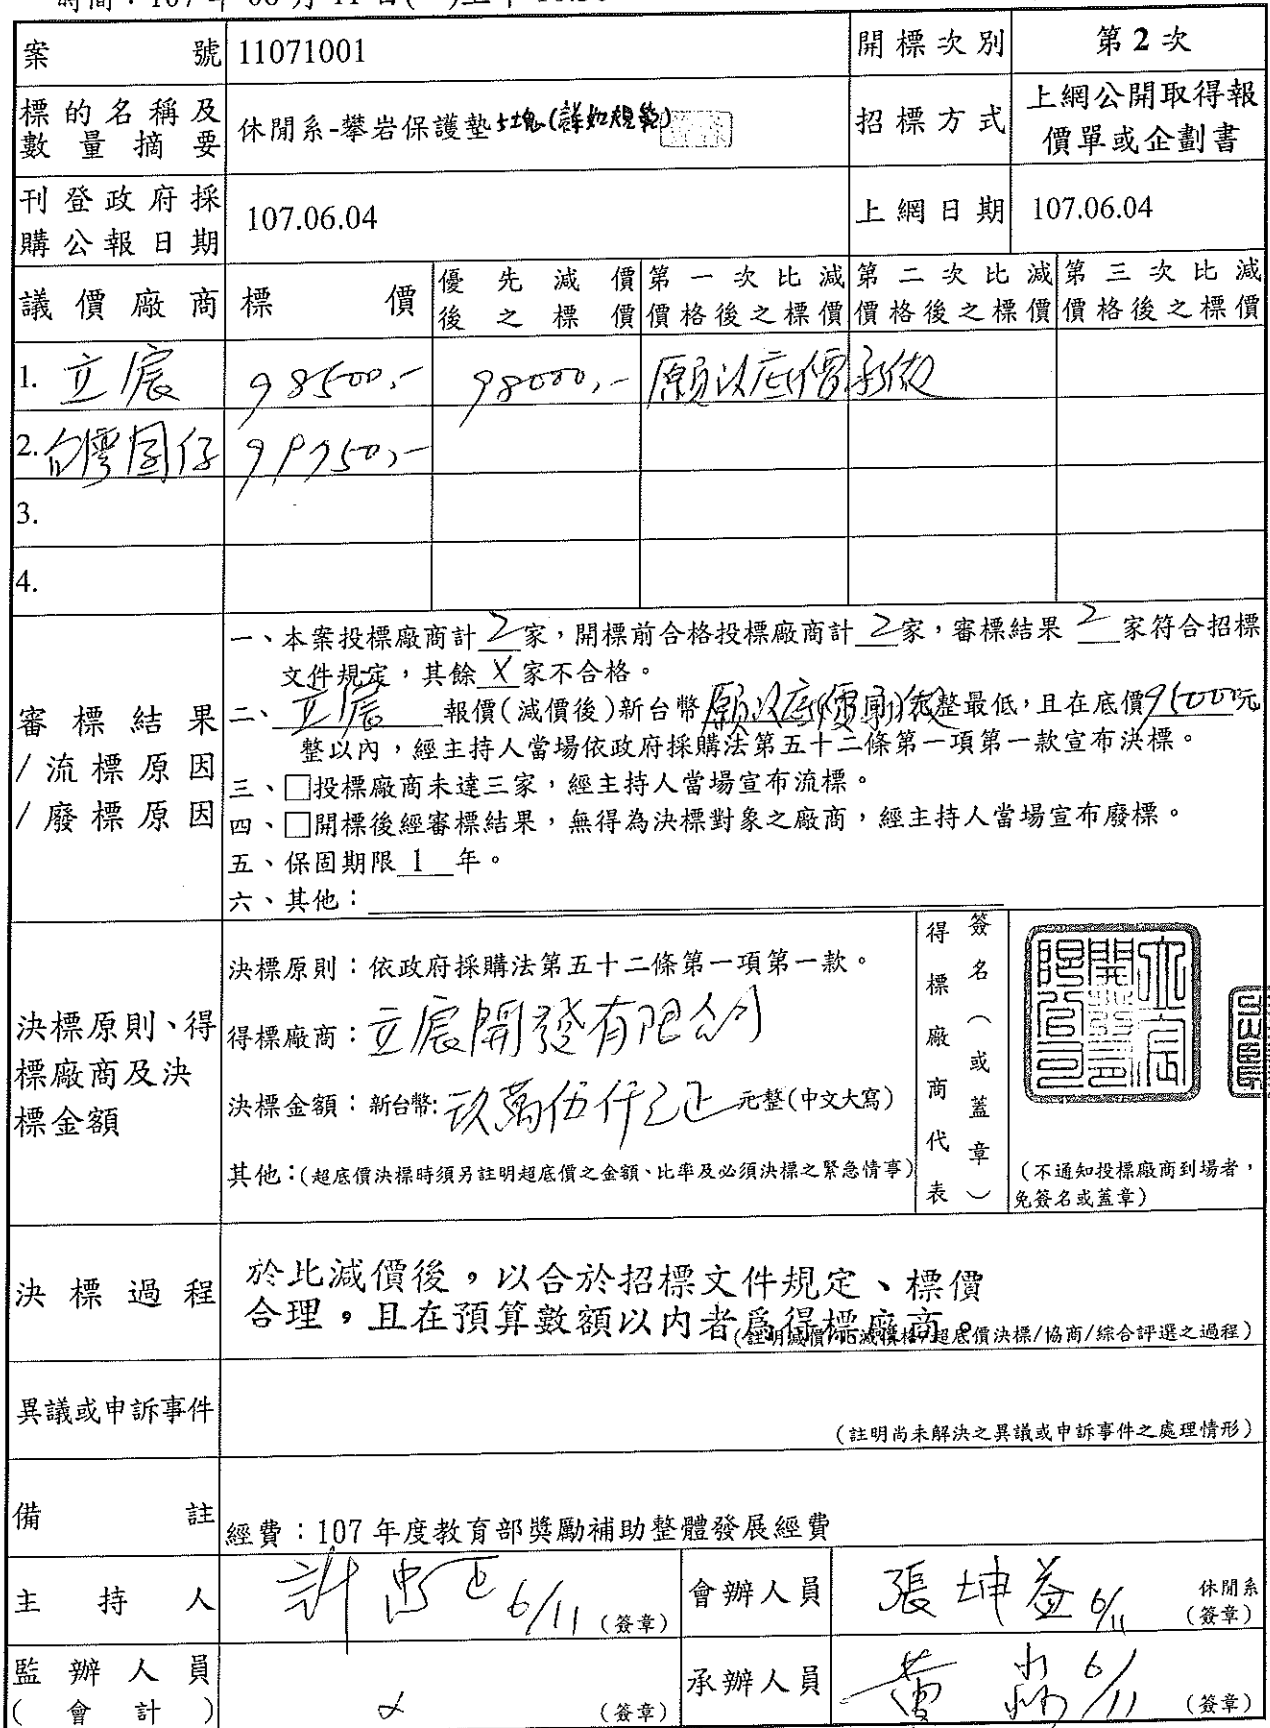 案 號 11071001 開標次別 第2次
標的名稱及數量摘要 休閒系-攀岩保護墊 (詳如規範) 招標方式 上網公開取得報價單或企劃書
刊登政府採購公報日期 107.06.04 上網日期 107.06.04
議價廠商 標價 優先減價後之標價 第一次比減價格後之標價 第二次比減價格後之標價 第三次比減價格後之標價
1. 立宸 98500,- 98000,- 願以底價承做
2.
3.
4.
審標結果/流標原因/廢標原因
一、本案投標廠商計 2 家,開標前合格投標廠商計 2 家,審標結果 2 家符合招標
文件規定,其餘 X 家不合格。
二、立宸 報價(減價後)新台幣 願以底價承做 整最低,且在底價95000元
整以內,經主持人當場依政府採購法第五十二條第一項第一款宣布決標。
三、□投標廠商未達三家,經主持人當場宣布流標。
四、□開標後經審標結果,無得為決標對象之廠商,經主持人當場宣布廢標。
五、保固期限 1 年。
六、其他:
決標原則、得標廠商及決標金額
決標原則:依政府採購法第五十二條第一項第一款。
得標廠商:立宸開發有限公司
決標金額:新台幣:玖萬伍仟元正 元整(中文大寫)
其他:(超底價決標時須另註明超底價之金額、比率及必須決標之緊急情事)
得標廠商代表
簽名(或蓋章)
(不通知投標廠商到場者,
免簽名或蓋章)
決標過程
於比減價後,以合於招標文件規定、標價
合理,且在預算數額以內者為得標廠商。
(註明減價/比減價格/超底價決標/協商/綜合評選之過程)
異議或申訴事件
(註明尚未解決之異議或申訴事件之處理情形)
備 註 經費:107 年度教育部獎勵補助整體發展經費
主持人 6/11 (簽章) 會辦人員 張坤益 6/11 休閒系(簽章)
監辦人員(會計) (簽章) 承辦人員 黃 6/11 (簽章)